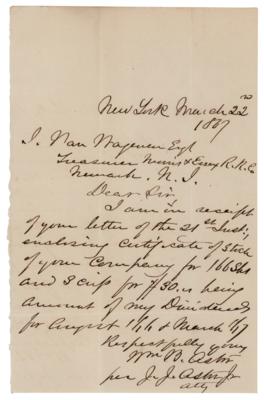 New York March 22nd
1867
I. Van Wagenen Esqr
Treasurer Morris & Essex R.R. Co
Newark. N. J.
Dear Sir
I am in receipt
of your letter of the 21st Inst;
enclosing Certificate of Stock
of your Company for 166 Shs
and 3 crip for $30.00 being
amount of my Dividends
for August 1/66 & March 1/67
Respectfully yours
Wm B. Astor
per J. J. Astor Jr
atty